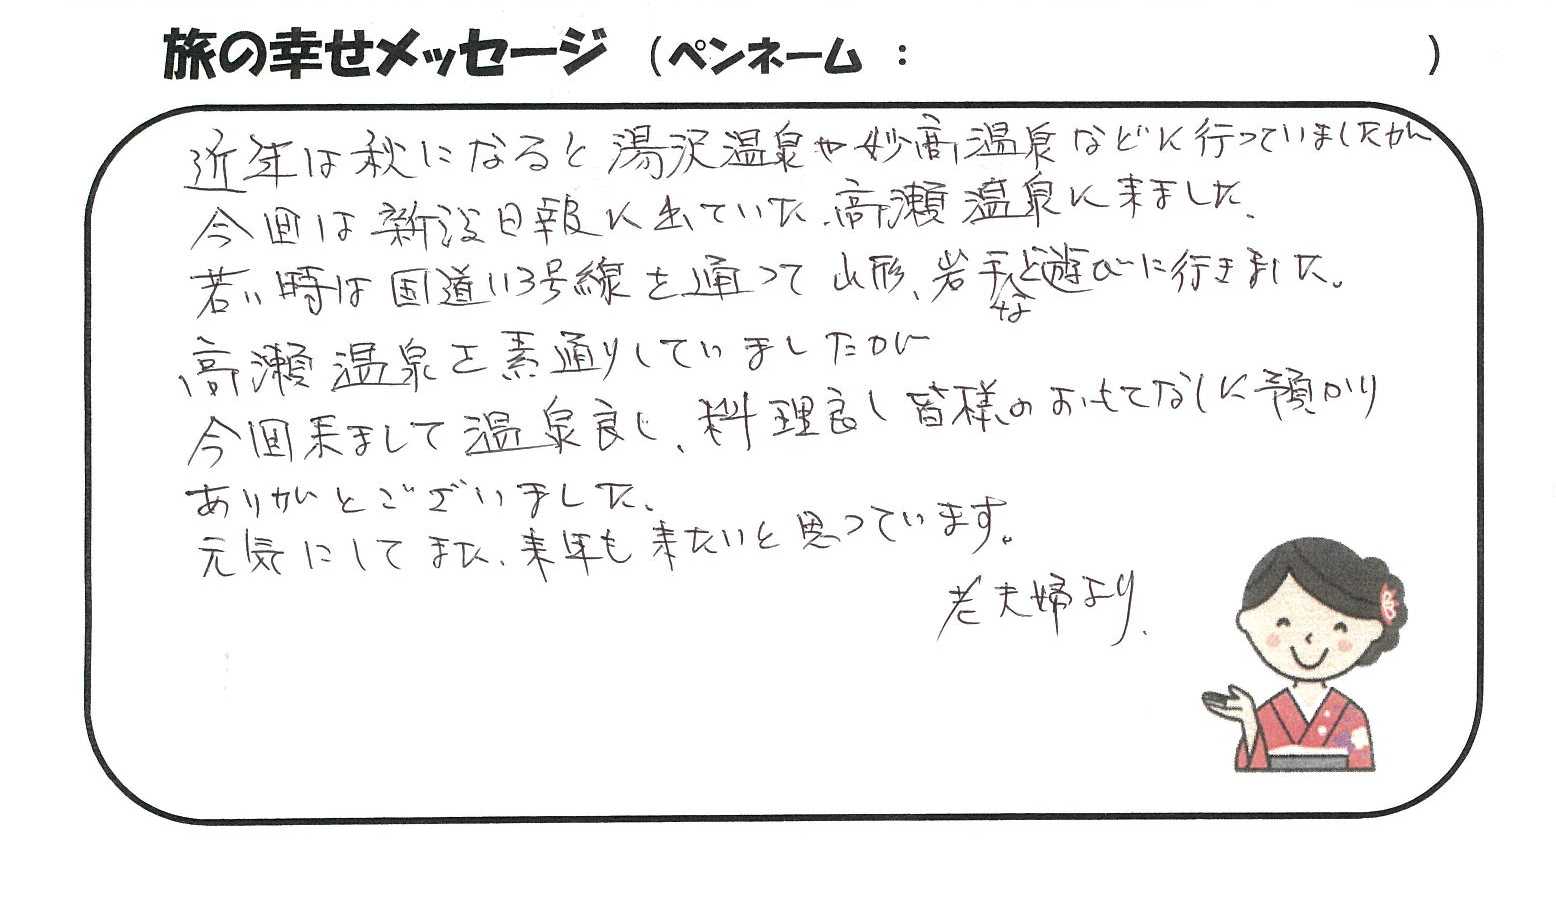 旅の幸せメッセージ （ペンネーム ： ）
近年は秋になると湯沢温泉や妙高温泉などに行っていましたが
今回は新潟日報に出ていた、高瀬温泉に来ました、
若い時は国道113号線を通って山形、岩手など遊びに行きました。
高瀬温泉を素通りしていましたが
今回来まして温泉良し、料理良し皆様のおもてなしに預かり
ありがとございました、
元気にしてまた、来年も来たいと思っています。
老夫婦より.